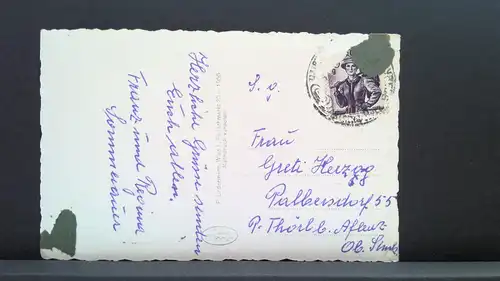 Herzliche Grüße senden
Euch allen,
Franz und Regina
Sommerauer
S. g.
Frau
Greti Herzog
Palbersdorf 55
P. Thörl b. Aflenz
Ob. Stmk.